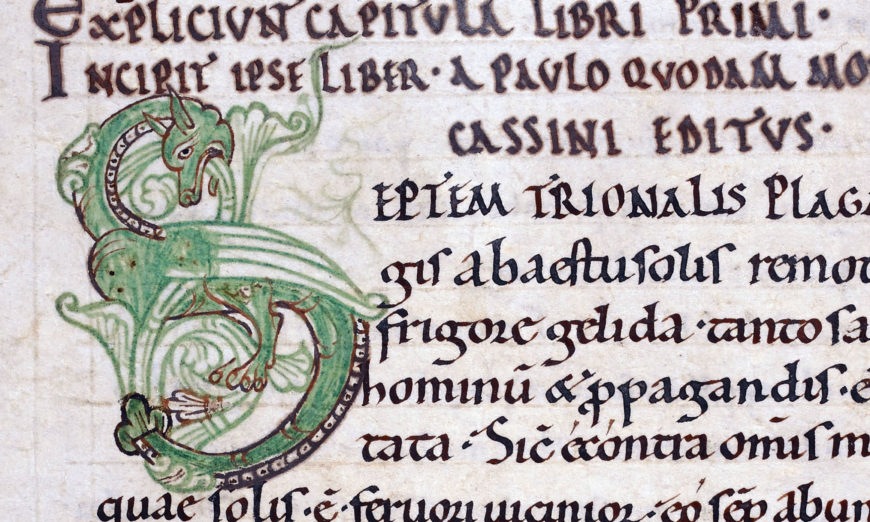 EXPLICIVNT CAPITVLA LIBRI PRIMI·
INCIPIT IPSE LIBER· A PAVLO QVODAM MO
CASSINI EDITVS·
SEPTEM TRIONALIS PLAGA
gis ab aestu solis remot
frigore gelida· tanto sa
hominū & ꝓpagandis· e
tata· Sic̄ econtra om̄is m
quae solis· ē· feruori uicinior· eo sēp abun